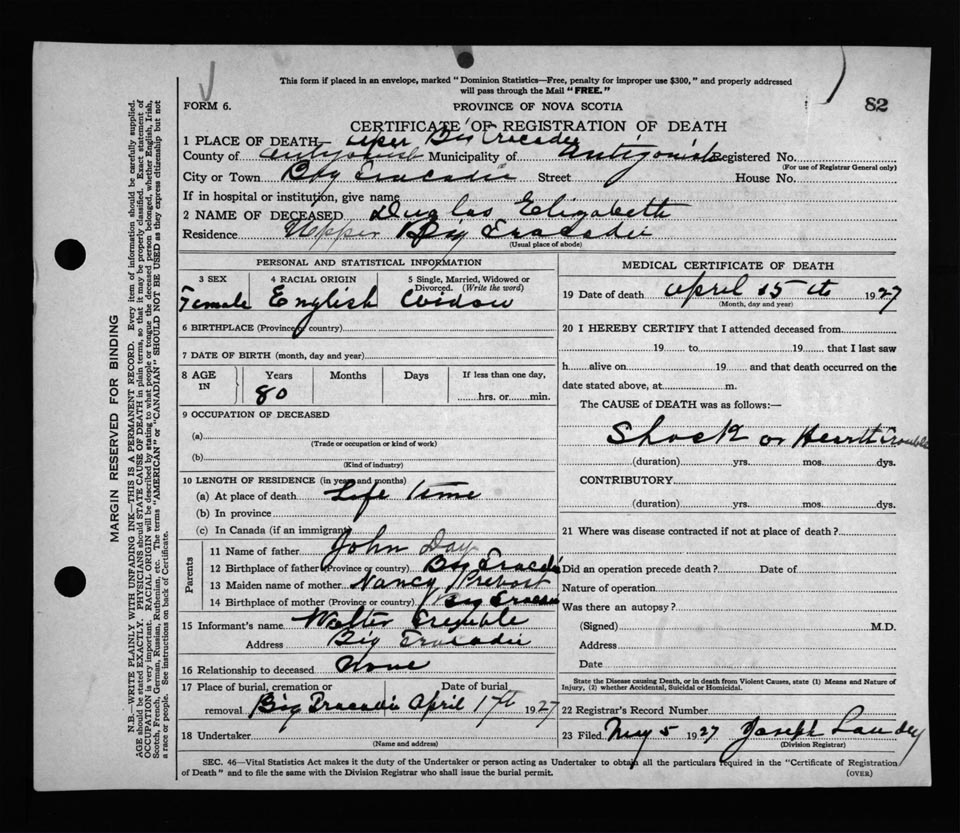 This form if placed in an envelope, marked "Dominion Statistics—Free, penalty for improper use $300," and properly addressed
will pass through the Mail "FREE."
FORM 6.
PROVINCE OF NOVA SCOTIA
82
CERTIFICATE OF REGISTRATION OF DEATH
1 PLACE OF DEATH Uper Big Tracadie
County of Antigonish Municipality of Antigonish Registered No.
(For use of Registrar General only)
City or Town Big Tracadie Street House No.
If in hospital or institution, give name
2 NAME OF DECEASED Duglas Elizabeth
Residence Upper Big Tracadie
(Usual place of abode)
PERSONAL AND STATISTICAL INFORMATION
3 SEX 4 RACIAL ORIGIN 5 Single, Married, Widowed or
Divorced. (Write the word)
Female English Widow
6 BIRTHPLACE (Province or country)
7 DATE OF BIRTH (month, day and year)
8 AGE IN Years Months Days If less than one day,
80 hrs. or min.
9 OCCUPATION OF DECEASED
(a)
(Trade or occupation or kind of work)
(b)
(Kind of industry)
10 LENGTH OF RESIDENCE (in years and months)
(a) At place of death Life time
(b) In province
(c) In Canada (if an immigrant)
Parents
11 Name of father John Day
12 Birthplace of father (Province or country) Big Tracadie
13 Maiden name of mother Nancy Prevost
14 Birthplace of mother (Province or country) Big Tracadie
15 Informant's name Walter
Address Big Tracadie
16 Relationship to deceased None
17 Place of burial, cremation or Date of burial
removal Big Tracadie April 17th 1927
18 Undertaker
(Name and address)
MEDICAL CERTIFICATE OF DEATH
19 Date of death April 15th 1927
(Month, day and year)
20 I HEREBY CERTIFY that I attended deceased from
19 to 19 that I last saw
h alive on 19 and that death occurred on the
date stated above, at m.
The CAUSE of DEATH was as follows:—
Shock or Heartt trouble
(duration) yrs. mos. dys.
CONTRIBUTORY
(duration) yrs. mos. dys.
21 Where was disease contracted if not at place of death?
Did an operation precede death? Date of
Nature of operation
Was there an autopsy?
(Signed) M.D.
Address
Date
State the Disease causing Death, or in death from Violent Causes, state (1) Means and Nature of
Injury, (2) whether Accidental, Suicidal or Homicidal.
22 Registrar's Record Number
23 Filed May 5 1927 Joseph Landry
(Division Registrar)
SEC. 46—Vital Statistics Act makes it the duty of the Undertaker or person acting as Undertaker to obtain all the particulars required in the "Certificate of Registration
of Death" and to file the same with the Division Registrar who shall issue the burial permit.
(OVER)
MARGIN RESERVED FOR BINDING
N.B.—WRITE PLAINLY WITH UNFADING INK—THIS IS A PERMANENT RECORD. Every item of information should be carefully supplied.
AGE should be stated EXACTLY. PHYSICIANS should STATE CAUSE OF DEATH in plain terms, so that it may be properly classified. Exact statement of
OCCUPATION is very important. RACIAL ORIGIN will be described by stating to what people or tongue the deceased person belonged, whether English, Irish,
Scotch, French, German, Russian, Ruthenian, etc. The terms "AMERICAN" or "CANADIAN" SHOULD NOT BE USED as they express citizenship but not
a race or people. See instructions on back of Certificate.